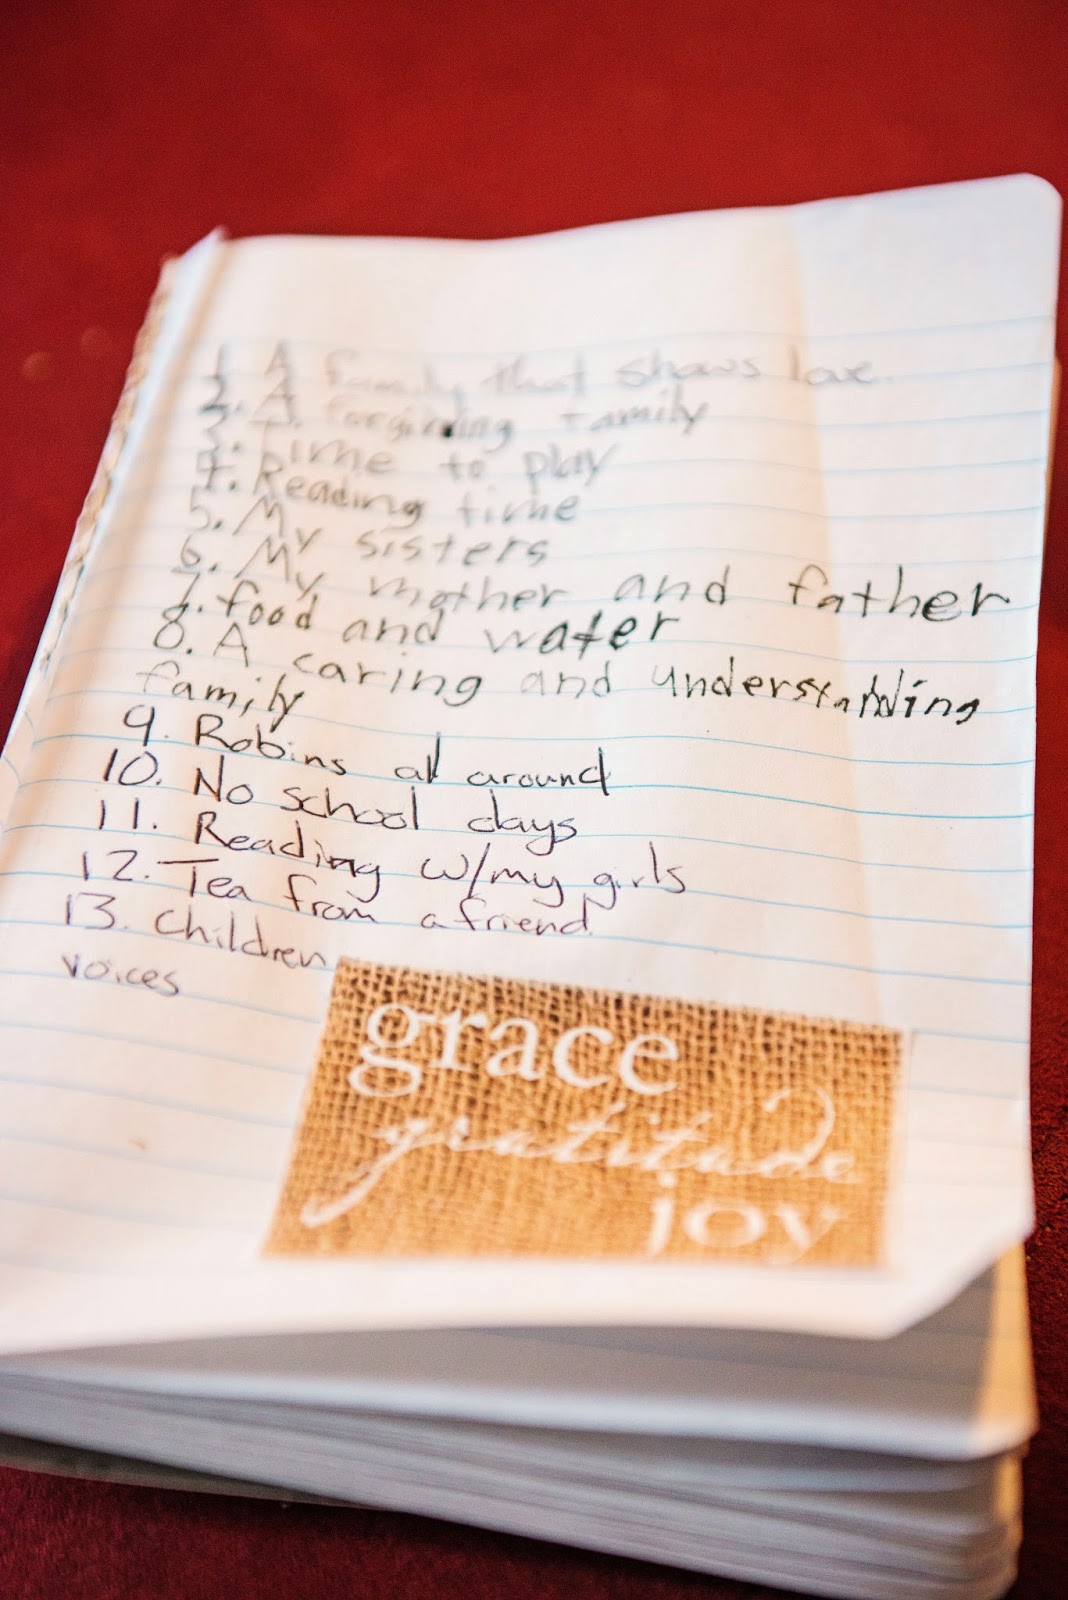 1. A family that shows love.
2. A forgiving family
3. Time to play
4. Reading time
5. My sisters
6. My mother and father
7. food and water
8. A caring and understanding
family
9. Robins all around
10. No school days
11. Reading w/my girls
12. Tea from a friend
13. Children
voices
grace
gratitude
joy